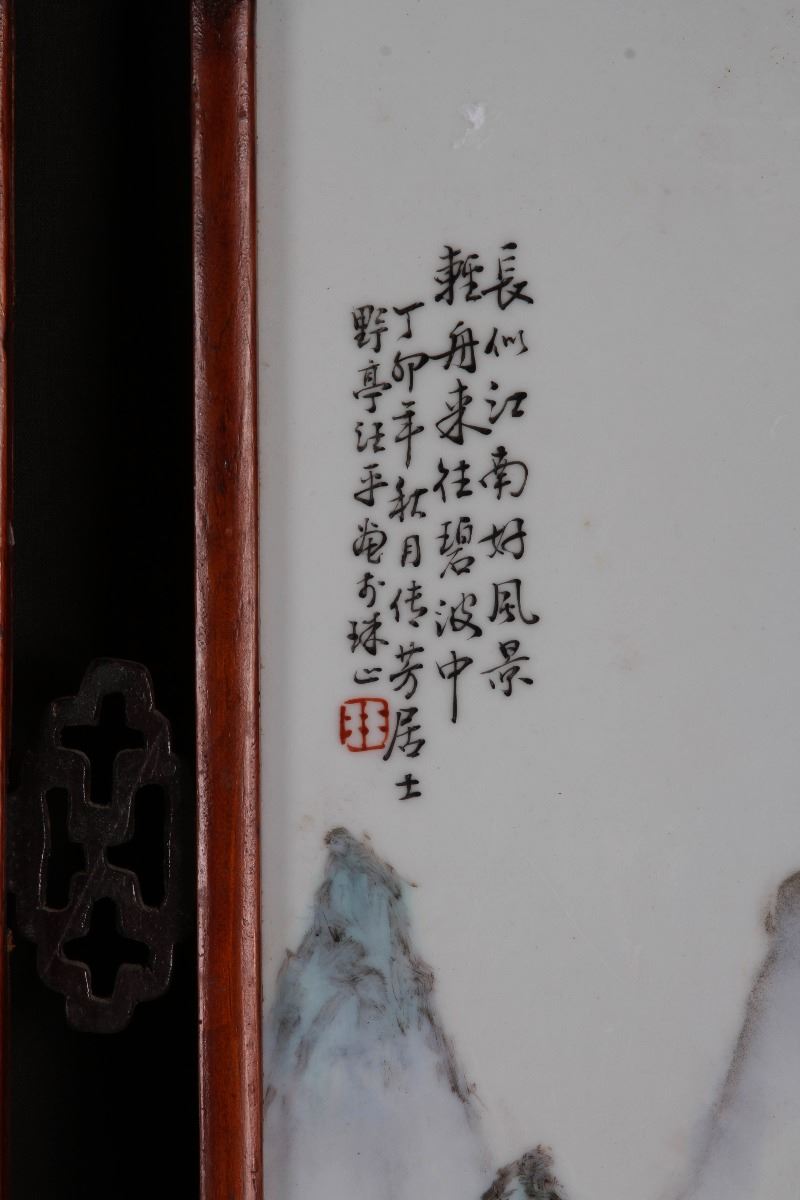 長似江南好風景
輕舟來往碧波中
丁卯年秋月倩芳居士
野亭汪平畫於珠山